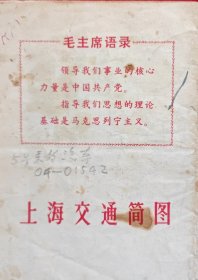 毛主席语录
领导我们事业的核心
力量是中国共产党。
指导我们思想的理论
基础是马克思列宁主义。
04-01542
上海交通简图